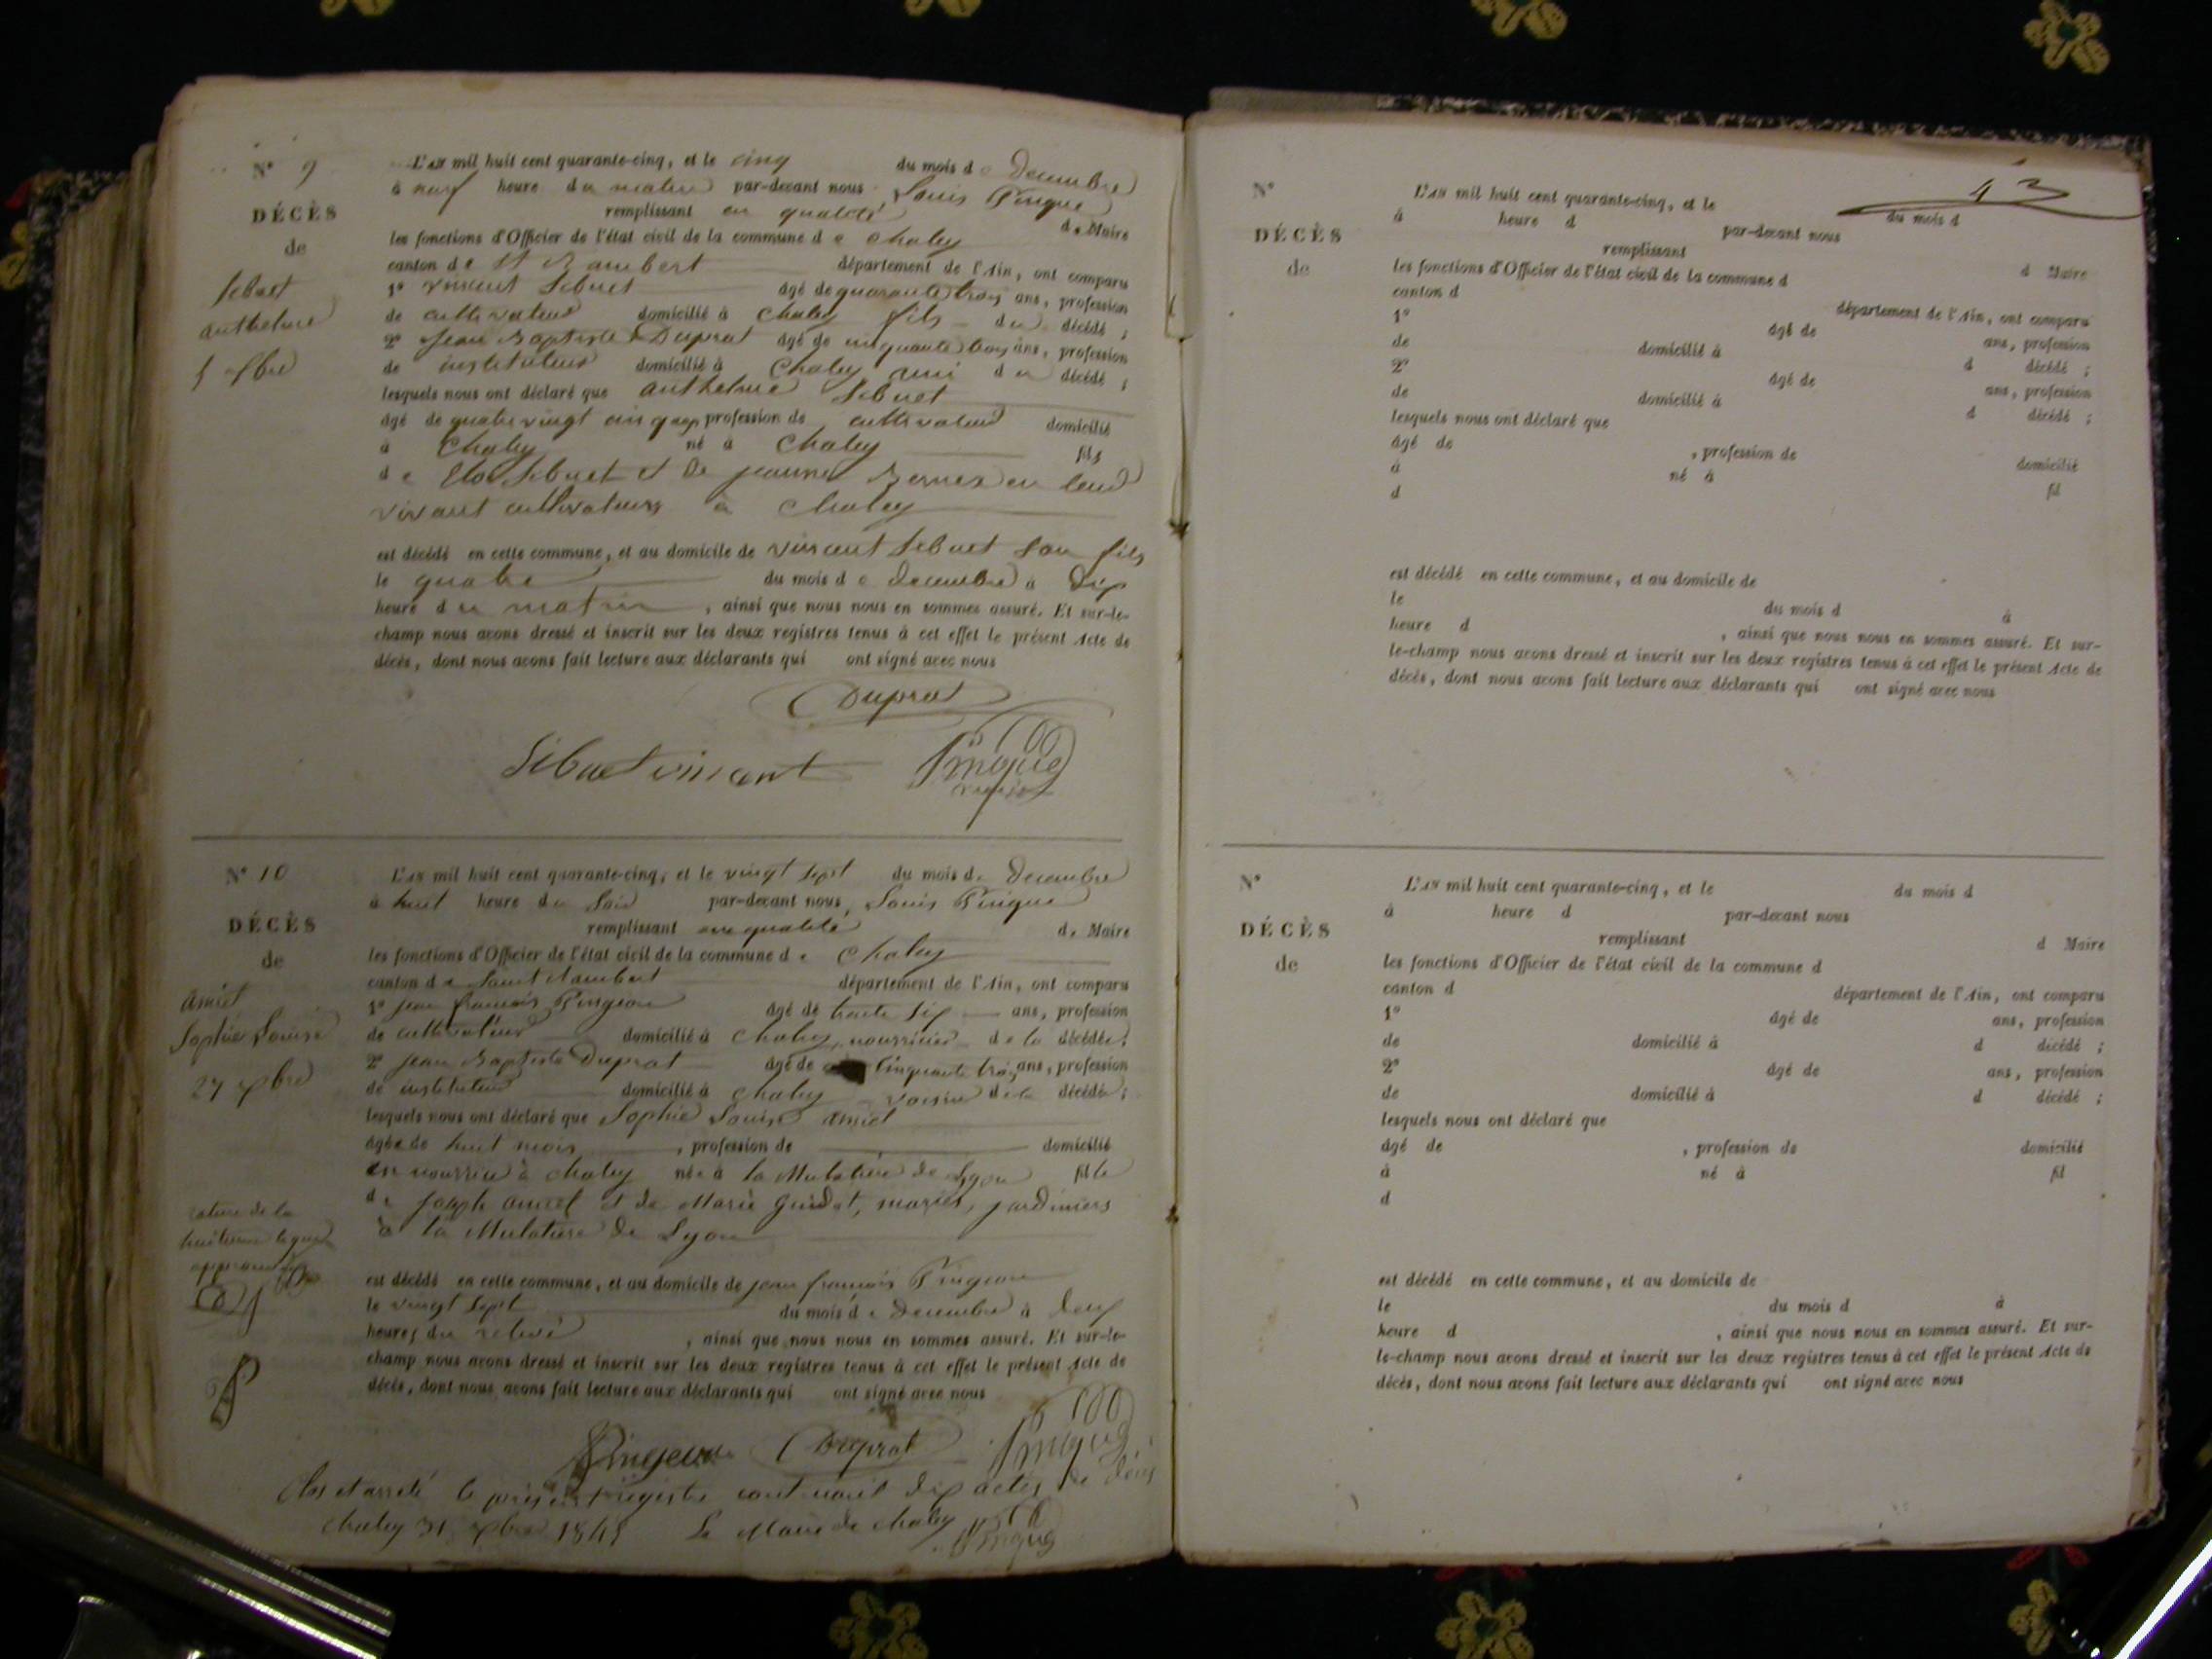 N° 9
DÉCÈS
de
Sibuet
anthelme
5 xbre
L'an mil huit cent quarante-cinq, et le cinq du mois de Decembre
à neuf heure du matin par-devant nous, Louis Pingue
remplissant en qualité de Maire
les fonctions d'Officier de l'état civil de la commune de Chaley
canton de St Rambert département de l'Ain, ont comparu
1° vincent Sibuet âgé de quarante trois ans, profession
de cultivateur domicilié à Chaley fils du décédé ;
2° Jean Baptiste Duprat âgé de cinquante trois ans, profession
de instituteur domicilié à Chaley ami du décédé ;
lesquels nous ont déclaré que anthelme Sibuet
âgé de quatre vingt cinq ans, profession de cultivateur domicilié
à Chaley né à Chaley fils
de Sibuet et de jeanne en leur
vivant cultivateurs à Chaley
est décédé en cette commune, et au domicile de vincent Sibuet son fils
le quatre du mois de decembre à dix
heure du matin, ainsi que nous nous en sommes assuré. Et sur-le-
champ nous avons dressé et inscrit sur les deux registres tenus à cet effet le présent Acte de
décès, dont nous avons fait lecture aux déclarants qui ont signé avec nous
Duprat
Sibuet vincent Pingue
N° 10
DÉCÈS
de
Amiet
Sophie Louise
27 xbre
L'an mil huit cent quarante-cinq, et le vingt sept du mois de Decembre
à huit heure du soir par-devant nous, Louis Pingue
remplissant en qualité de Maire
les fonctions d'Officier de l'état civil de la commune de Chaley
canton de Saint Rambert département de l'Ain, ont comparu
1° jean françois Pingeon âgé de trente six ans, profession
de cultivateur domicilié à Chaley, nourricier de la décédée ;
2° Jean Baptiste Duprat âgé de cinquante trois ans, profession
de instituteur domicilié à Chaley voisin de la décédée ;
lesquels nous ont déclaré que Sophie Louise Amiet
âgée de huit mois, profession de domicilié
en nourrice à Chaley née à la Mulatière de Lyon fille
de joseph amiet et de Marie Guidot, mariés, jardiniers
à la Mulatière de Lyon
rature de la
huitieme ligne
approuvée
est décédé en cette commune, et au domicile de jean françois Pingeon
le vingt sept du mois de Decembre à deux
heures du relevé, ainsi que nous nous en sommes assuré. Et sur-le-
champ nous avons dressé et inscrit sur les deux registres tenus à cet effet le présent Acte de
décès, dont nous avons fait lecture aux déclarants qui ont signé avec nous
Pingeon Duprat Pingue
Clos et arreté le présent régistre contenant dix actes de décès
Chaley 31 xbre 1845 Le Maire de Chaley
Pingue
43
N°
DÉCÈS
de
L'an mil huit cent quarante-cinq, et le du mois d
à heure d par-devant nous
remplissant d Maire
les fonctions d'Officier de l'état civil de la commune d
canton d département de l'Ain, ont comparu
1° âgé de ans, profession
de domicilié à d décédé ;
2° âgé de ans, profession
de domicilié à d décédé ;
lesquels nous ont déclaré que
âgé de , profession de domicilié
à né à fil
d
est décédé en cette commune, et au domicile de
le du mois d à
heure d , ainsi que nous nous en sommes assuré. Et sur-
le-champ nous avons dressé et inscrit sur les deux registres tenus à cet effet le présent Acte de
décès, dont nous avons fait lecture aux déclarants qui ont signé avec nous
N°
DÉCÈS
de
L'an mil huit cent quarante-cinq, et le du mois d
à heure d par-devant nous
remplissant d Maire
les fonctions d'Officier de l'état civil de la commune d
canton d département de l'Ain, ont comparu
1° âgé de ans, profession
de domicilié à d décédé ;
2° âgé de ans, profession
de domicilié à d décédé ;
lesquels nous ont déclaré que
âgé de , profession de domicilié
à né à fil
d
est décédé en cette commune, et au domicile de
le du mois d à
heure d , ainsi que nous nous en sommes assuré. Et sur-
le-champ nous avons dressé et inscrit sur les deux registres tenus à cet effet le présent Acte de
décès, dont nous avons fait lecture aux déclarants qui ont signé avec nous